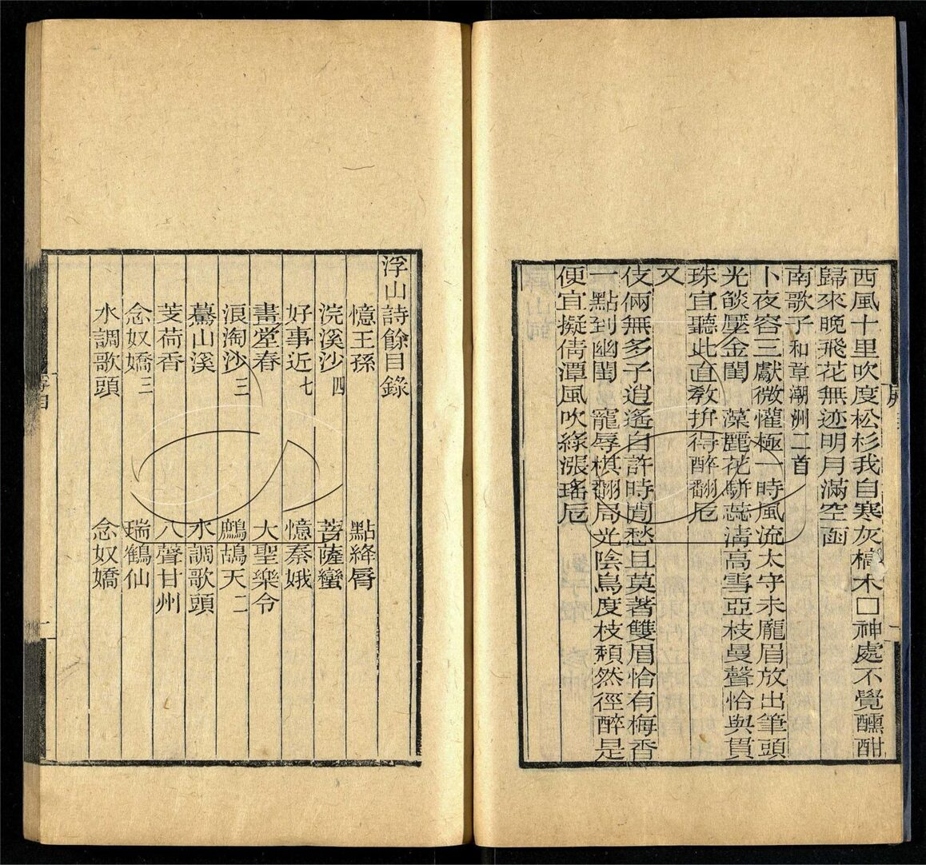 西風十里吹度松杉我自寒灰槁木□神處不覺醺酣
歸來晚飛花無迹明月滿空函
南歌子和章潮洲二首
卜夜容三獻微懽極一時風流太守未龐眉放出筆頭
光燄壓金閨　藻麗花駢蘂淸高雪亞枝曼聲恰與貫
珠宜聽此直教拚得醉翻卮
又
伎倆無多子逍遙自許時閒愁且莫著雙眉恰有梅香
一點到幽閨　寵辱棋翻局光陰鳥度枝頹然徑醉是
便宜擬倩潭風吹綠漲瑤卮
浮山詩餘目錄
憶王孫　點絳脣
浣溪沙四　菩薩蠻
好事近七　憶秦娥
書堂春　大聖樂令
浪淘沙三　鷓鴣天二
驀山溪　水調歌頭
芰荷香　八聲甘州
念奴嬌三　瑞鶴仙
水調歌頭　念奴嬌